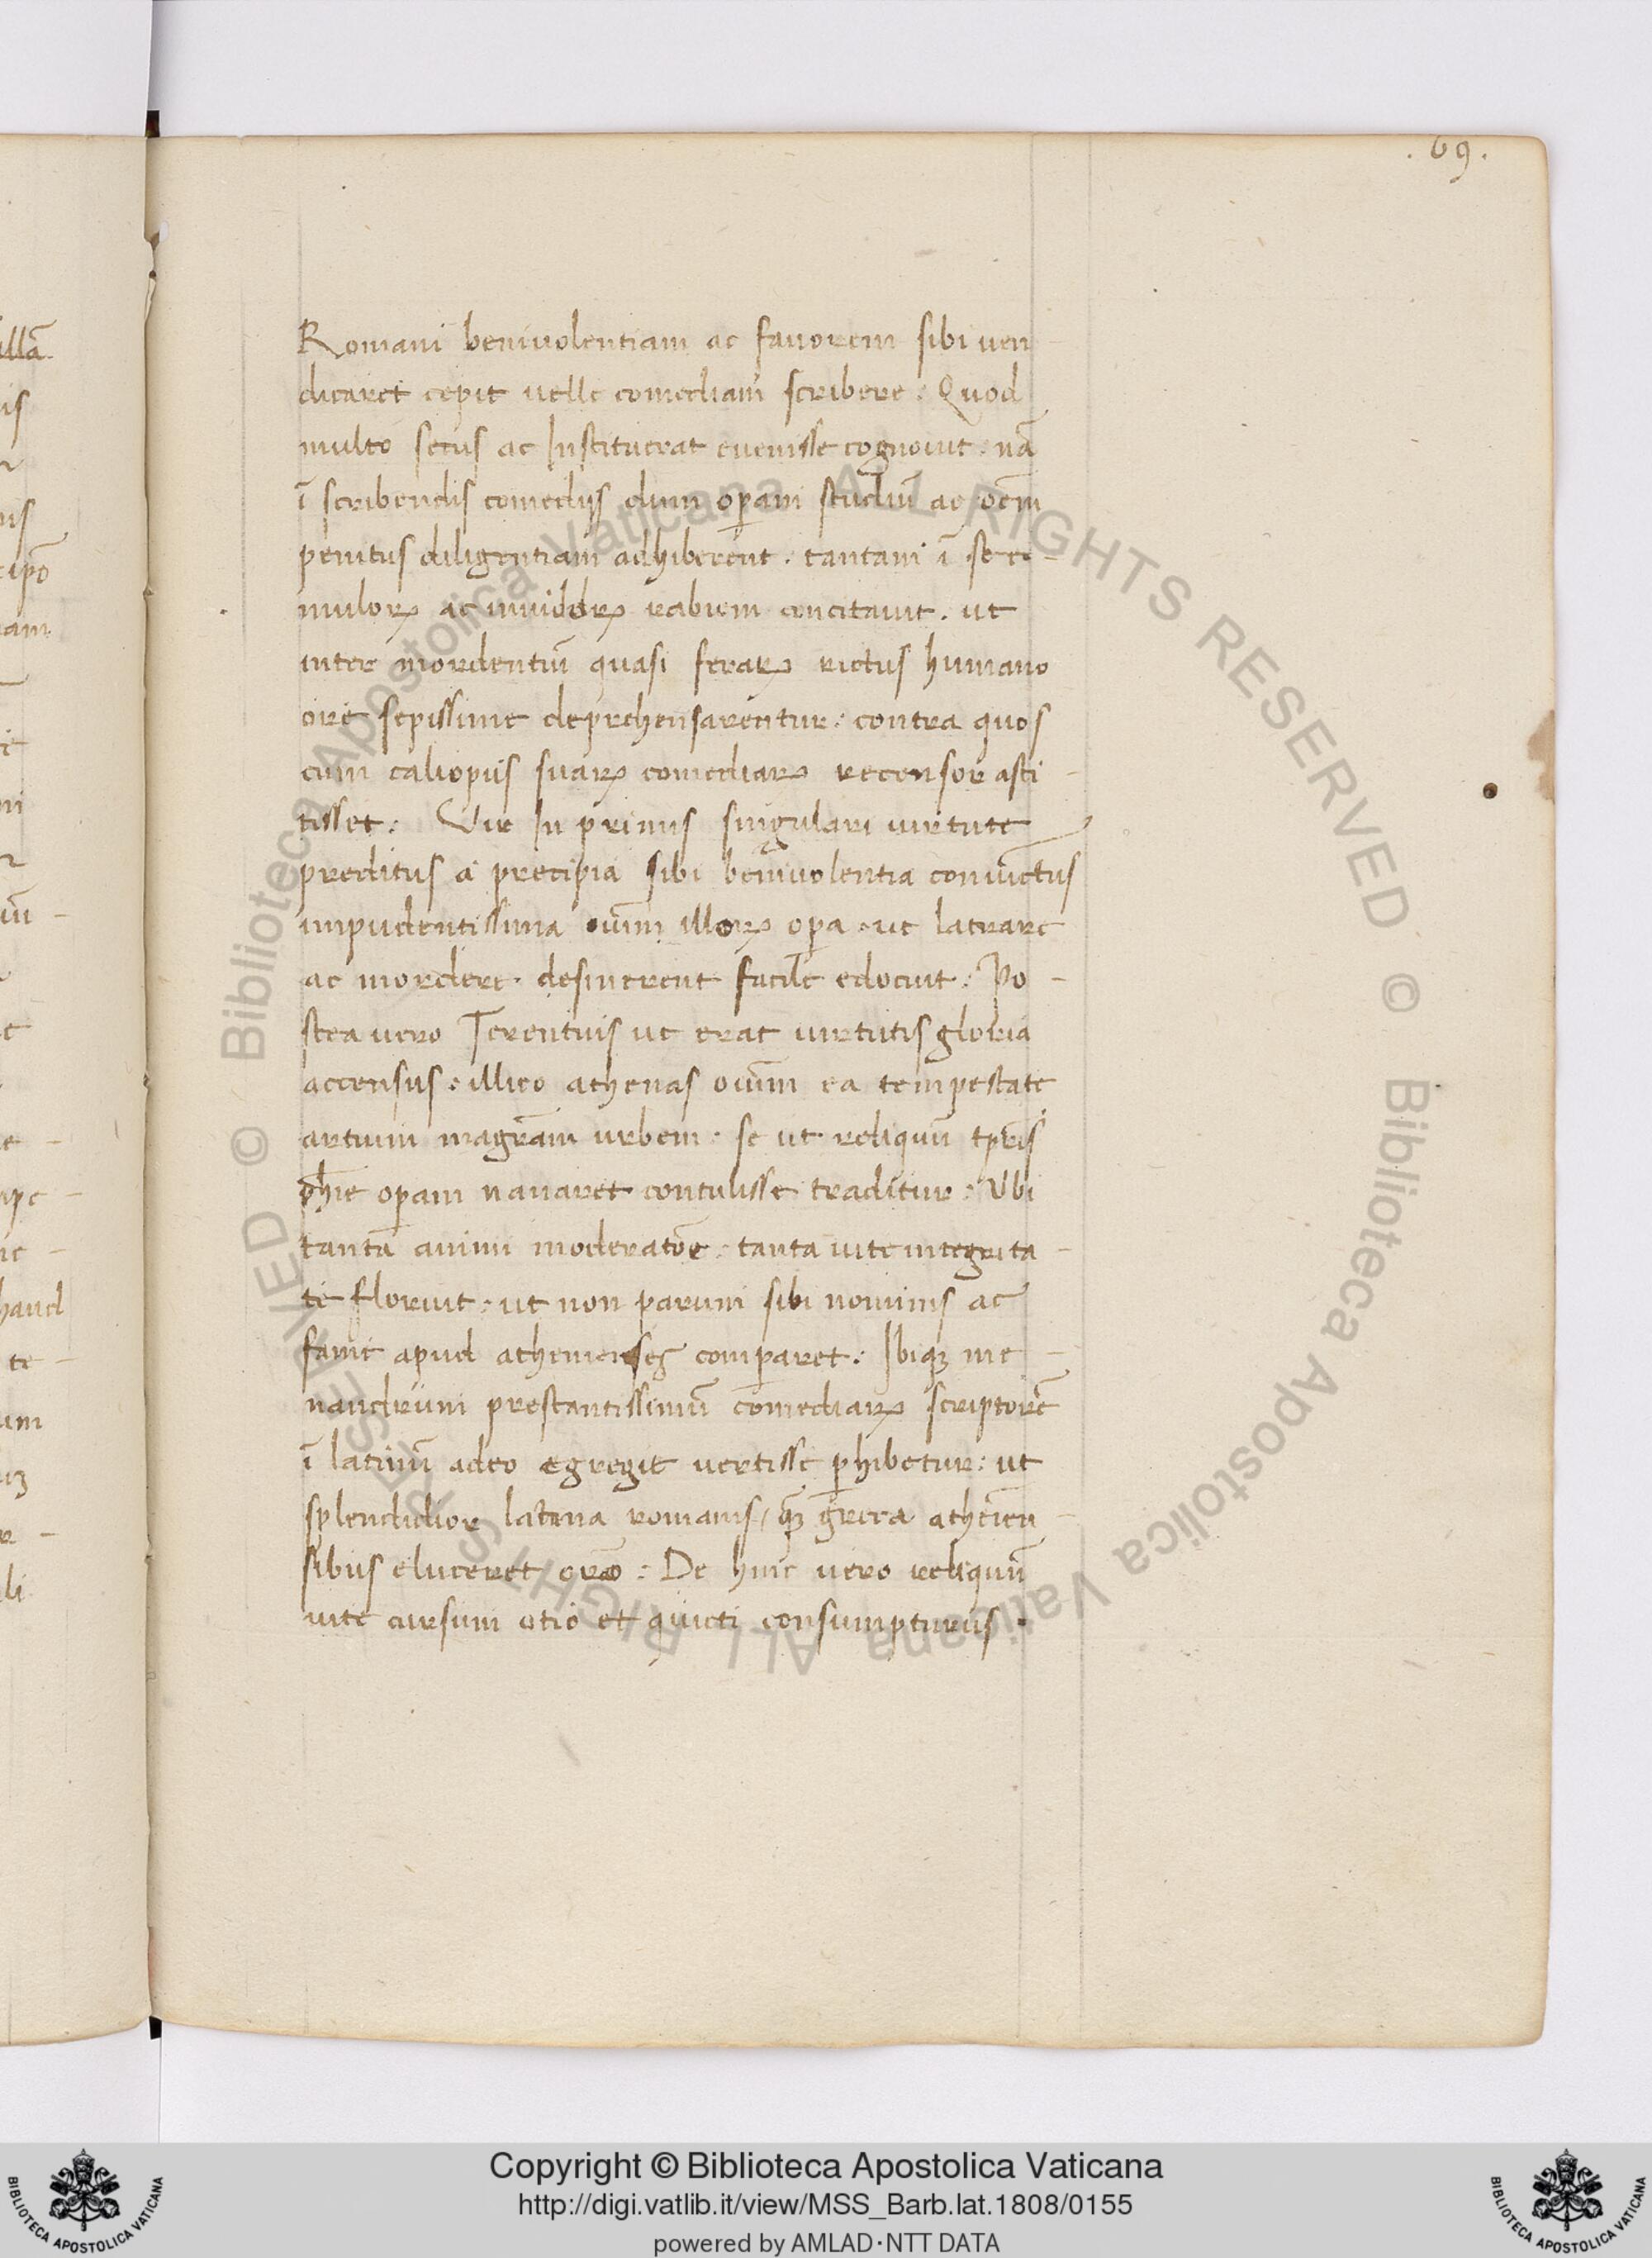 . 69 .
Romani beniuolentiam ac fauorem sibi uen
dicaret cepit uelle comediam scribere : Quod
multo secus ac Instituerat euenisse cognouit . nā
ī scribendis comediis dum operam studiū ac oēm
penitus diligentiam adhiberent . tantam ī se e-
mulorꝝ ac inuidorꝝ rabiem concitauit . ut
inter mordentiū quasi ferarꝝ rictus humano
ore sepissime deprehensarentur : contra quos
cum caliopiis suarꝝ comediarꝝ recensor asti -
tisset : Vir In primis singulari uirtute
preditus a precipia sibi beniuolentia conuictus
impudentissima oīum illorꝝ opa . ut latrare
ac mordere . desinerent facile edocuit : Po -
stea uero Terentius ut erat uirtutis gloria
accensus : illico athenas oīum ea tempestate
artium magrām urbem . se ut reliquū tpris
phie operam nauaret contulisse traditur : Vbi
tanta animi moderatōe . tanta uite integrita -
te floruit : ut non parum sibi nominis ac
fame apud athenienses compararet : Ibiqꝫ me -
nandrum prestantissimū comediarꝝ scriptorē
ī latinū adeo egregie uertisse perhibetur : ut
splendidior latina romanis / qꝫ greca athenien -
sibus eluceret orō : De hinc uero reliquū
uite cursum otio et quieti consumpturus .
illā
is
ipō
am
haud
te -
um
li
Copyright © Biblioteca Apostolica Vaticana
http://digi.vatlib.it/view/MSS_Barb.lat.1808/0155
powered by AMLAD·NTT DATA
BIBLIOTECA APOSTOLICA VATICANA
BIBLIOTECA APOSTOLICA VATICANA
© Biblioteca Apostolica Vaticana ALL RIGHTS RESERVED © Biblioteca Apostolica Vaticana ALL RIGHTS RESERVED